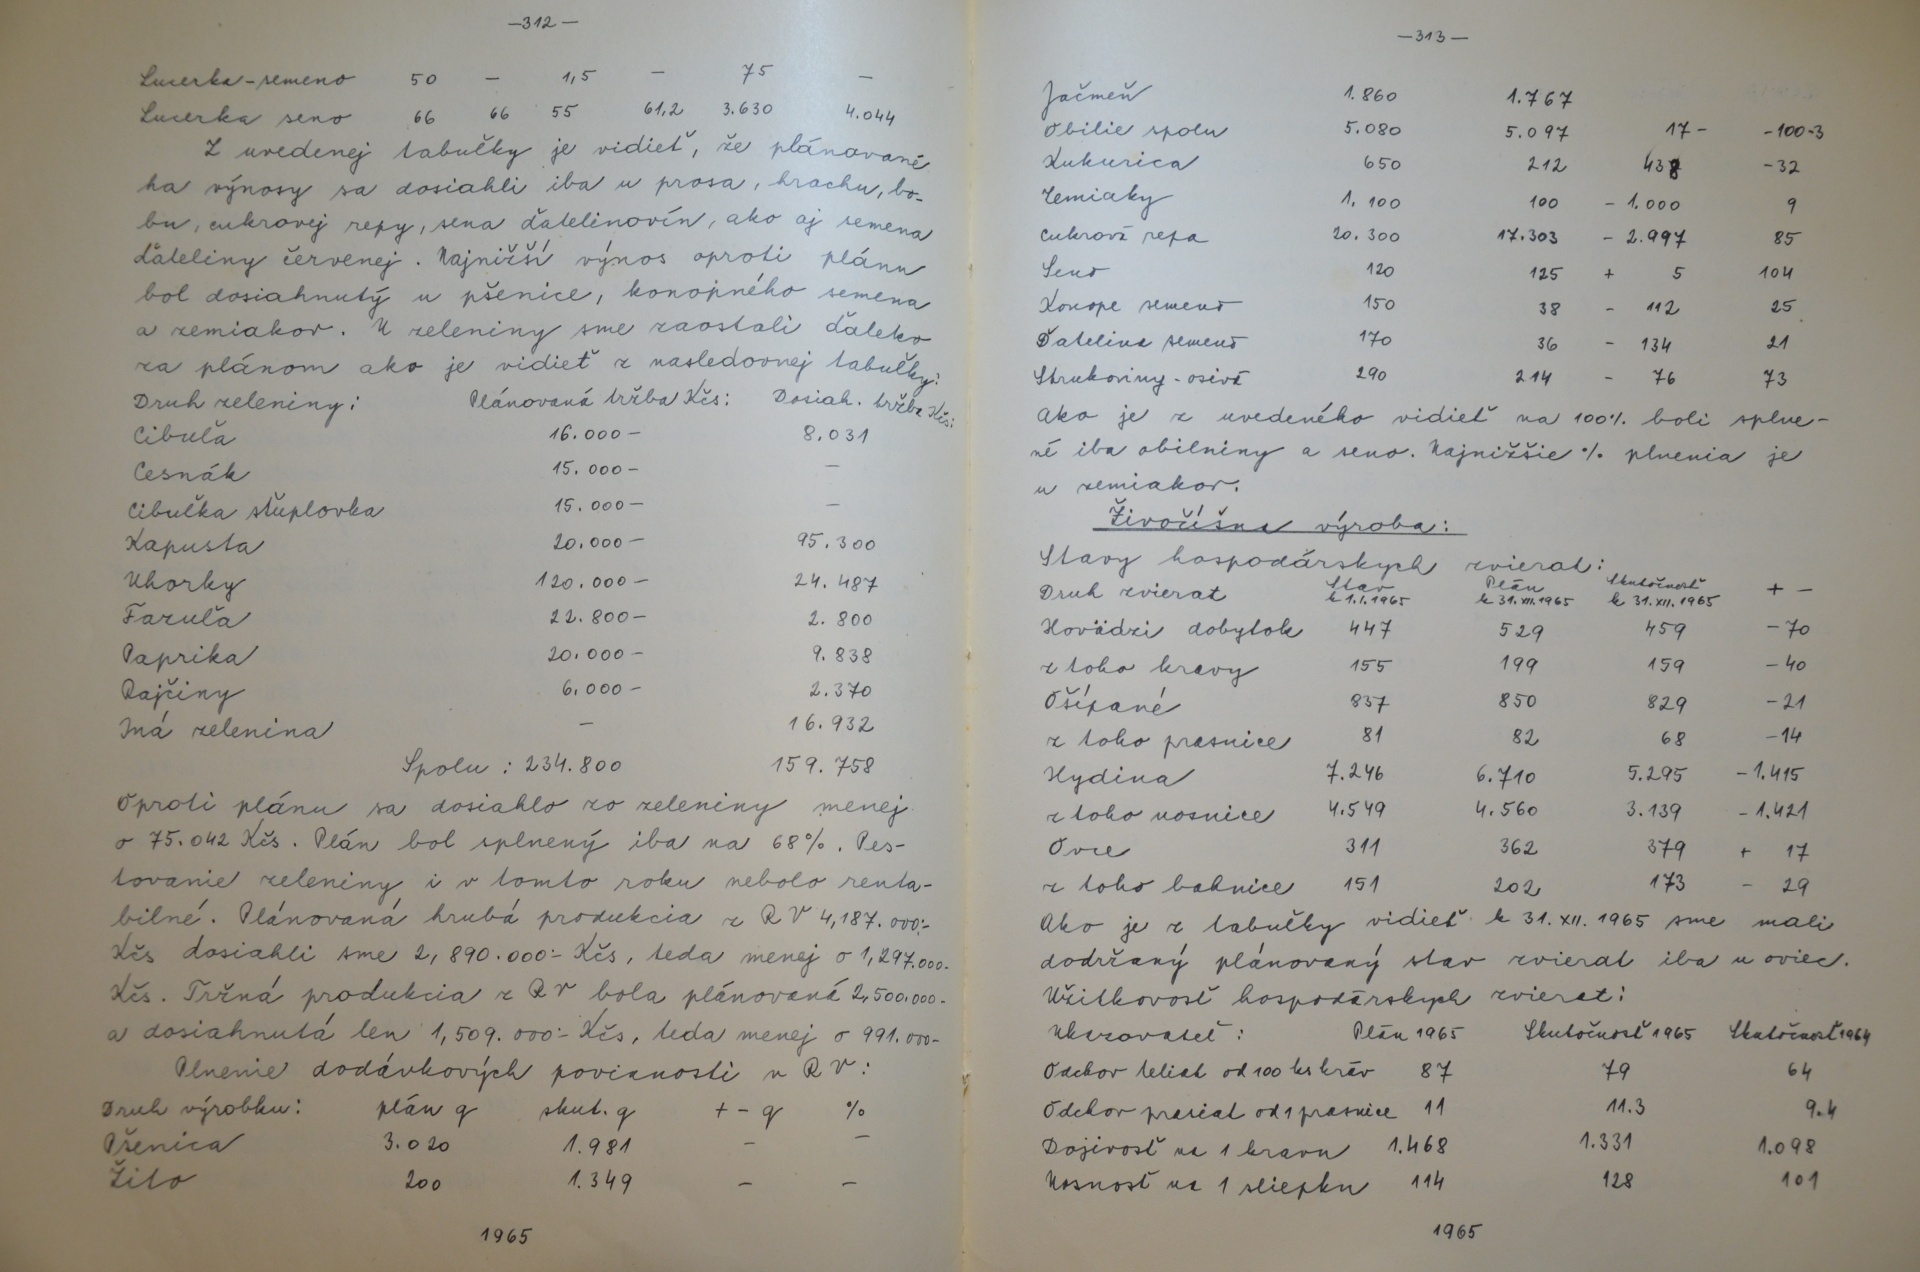 —312—
Lucerka-semeno 50 — 1,5 — 75 —
Lucerka seno 66 66 55 61,2 3.630 4.044
Z uvedenej tabuľky je vidieť, že plánované
ha výnosy sa dosiahli iba u prosa, hrachu, bo-
bu, cukrovej repy, sena ďatelinovín, ako aj semena
ďateliny červenej. Najnižší výnos oproti plánu
bol dosiahnutý u pšenice, konopného semena
a zemiakov. U zeleniny sme zaostali ďaleko
za plánom ako je vidieť z nasledovnej tabuľky:
Druh zeleniny: Plánovaná tržba Kčs: Dosiah. tržba Kčs:
Cibuľa 16.000- 8.031
Cesnák 15.000- —
Cibuľka štuplovka 15.000- —
Kapusta 20.000- 95.300
Uhorky 120.000- 24.487
Fazuľa 22.800- 2.800
Paprika 20.000- 9.838
Rajčiny 6.000- 2.370
Iná zelenina — 16.932
Spolu: 234.800 159.758
Oproti plánu sa dosiahlo zo zeleniny menej
o 75.042 Kčs. Plán bol splnený iba na 68%. Pes-
tovanie zeleniny i v tomto roku nebolo renta-
bilné. Plánovaná hrubá produkcia z RV 4,187.000:-
Kčs dosiahli sme 2,890.000:- Kčs, teda menej o 1,297.000.-
Kčs. Tržná produkcia z RV bola plánovaná 2,500.000.-
a dosiahnutá len 1,509.000:- Kčs, teda menej o 991.000-
Plnenie dodávkových povinností v RV:
Druh výrobku: plán q skut. q + - q %
Pšenica 3.020 1.981 — —
Žito 200 1.349 — —
1965
—313—
Jačmeň 1.860 1.767
Obilie spolu 5.080 5.097 17- -100-3
Kukurica 650 212 438 -32
Zemiaky 1.100 100 - 1.000 9
Cukrová repa 20.300 17.303 - 2.997 85
Seno 120 125 + 5 104
Konope semeno 150 38 - 112 25
Ďatelina semeno 170 36 - 134 21
Strukoviny-osivá 290 214 - 76 73
Ako je z uvedeného vidieť na 100% boli splne-
né iba obilniny a seno. Najnižšie % plnenia je
u zemiakov.
Živočíšna výroba:
Stavy hospodárskych zvierat:
Druh zvierat Stav k 1.1.1965 Plán k 31.XII.1965 Skutočnosť k 31.XII.1965 + -
Hovädzí dobytok 447 529 459 -70
z toho kravy 155 199 159 -40
Ošípané 837 850 829 -21
z toho prasnice 81 82 68 -14
Hydina 7.246 6.710 5.295 -1.415
z toho nosnice 4.549 4.560 3.139 -1.421
Ovce 311 362 379 + 17
z toho bahnice 151 202 173 - 29
Ako je z tabuľky vidieť k 31.XII.1965 sme mali
dodržaný plánovaný stav zvierat iba u oviec.
Užitkovosť hospodárskych zvierat:
Ukazovateľ: Plán 1965 Skutočnosť 1965 Skutočnosť 1964
Odchov teliat od 100 ks kráv 87 79 64
Odchov prasiat od 1 prasnice 11 11.3 9.4
Dojivosť na 1 kravu 1.468 1.331 1.098
Nosnosť na 1 sliepku 114 128 101
1965